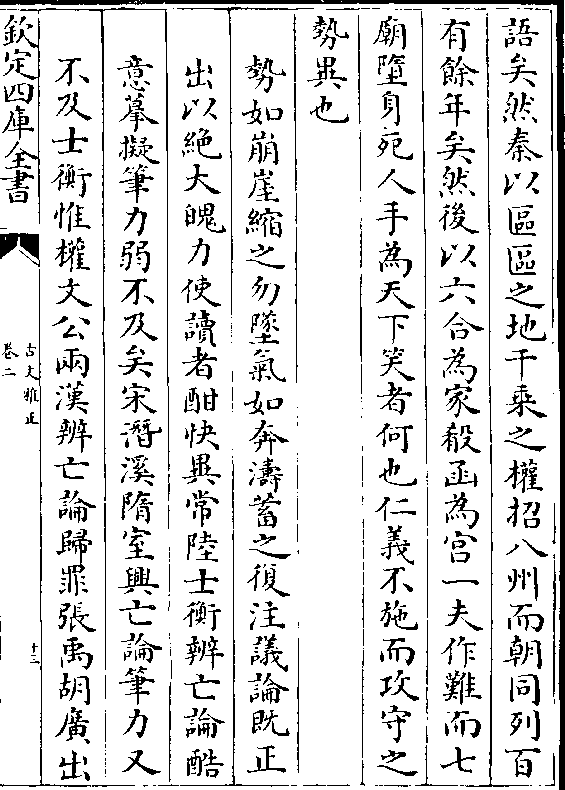 語矣然秦以區區之地千乘之權招八州而朝同列百
有餘年矣然後以六合為家殽函為宫一夫作難而七
廟墮身死人手為天下笑者何也仁義不施而攻守之
勢異也
勢如崩崖縮之勿墜氣如奔濤蓄之復注議論既正
出以絶大魄力使讀者酣快異常陸士衡辨亡論酷
意摹擬筆力弱不及矣宋潛溪隋室興亡論筆力又
不及士衡惟權文公兩漢辨亡論歸罪張禹胡廣出
欽定四庫全書
古文雅正
卷二
十三